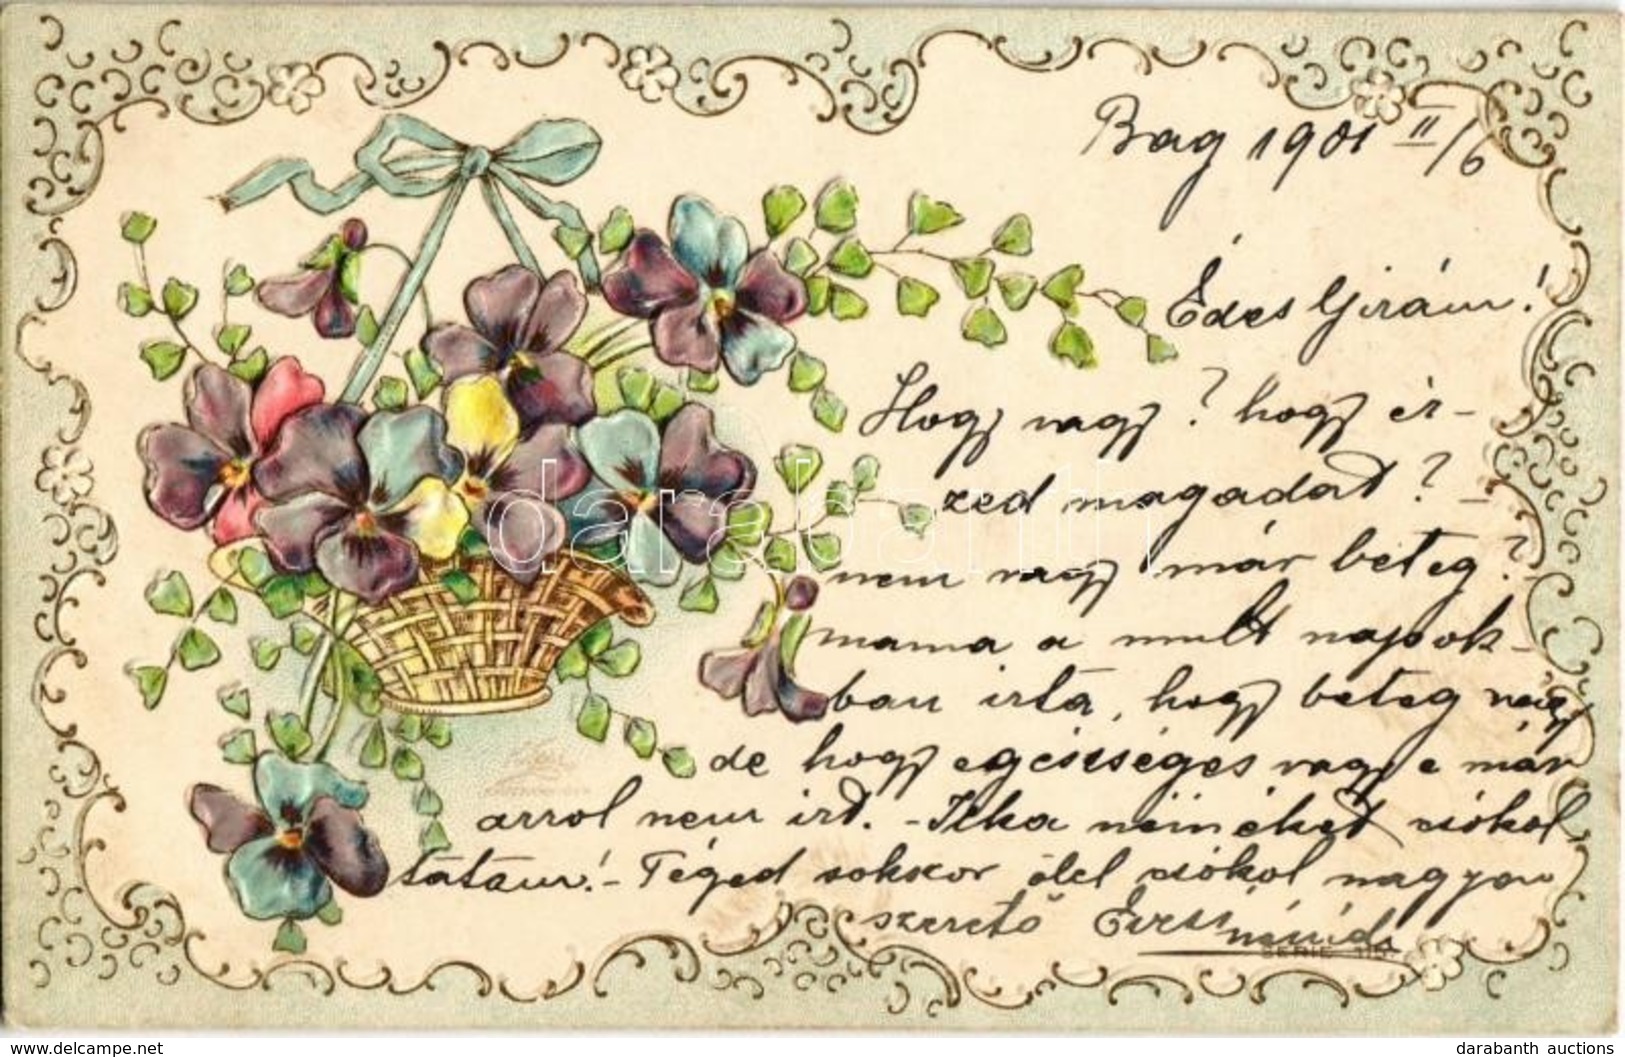 Bag 1901 II/6
Édes Gizám!
Hogy vagy? hogy ér-
zed magadat? -
nem vagy már beteg?
mama a mult napok-
ban írta, hogy beteg vagy
de hogy egésséges vagy e már
arrol nem irt. - Ilka néniéket csókol
tatam! - Téged sokszor ölel csókol nagyon
szerető nénéd
SERIE
darabanth
www.delcampe.net
darabanth auctions